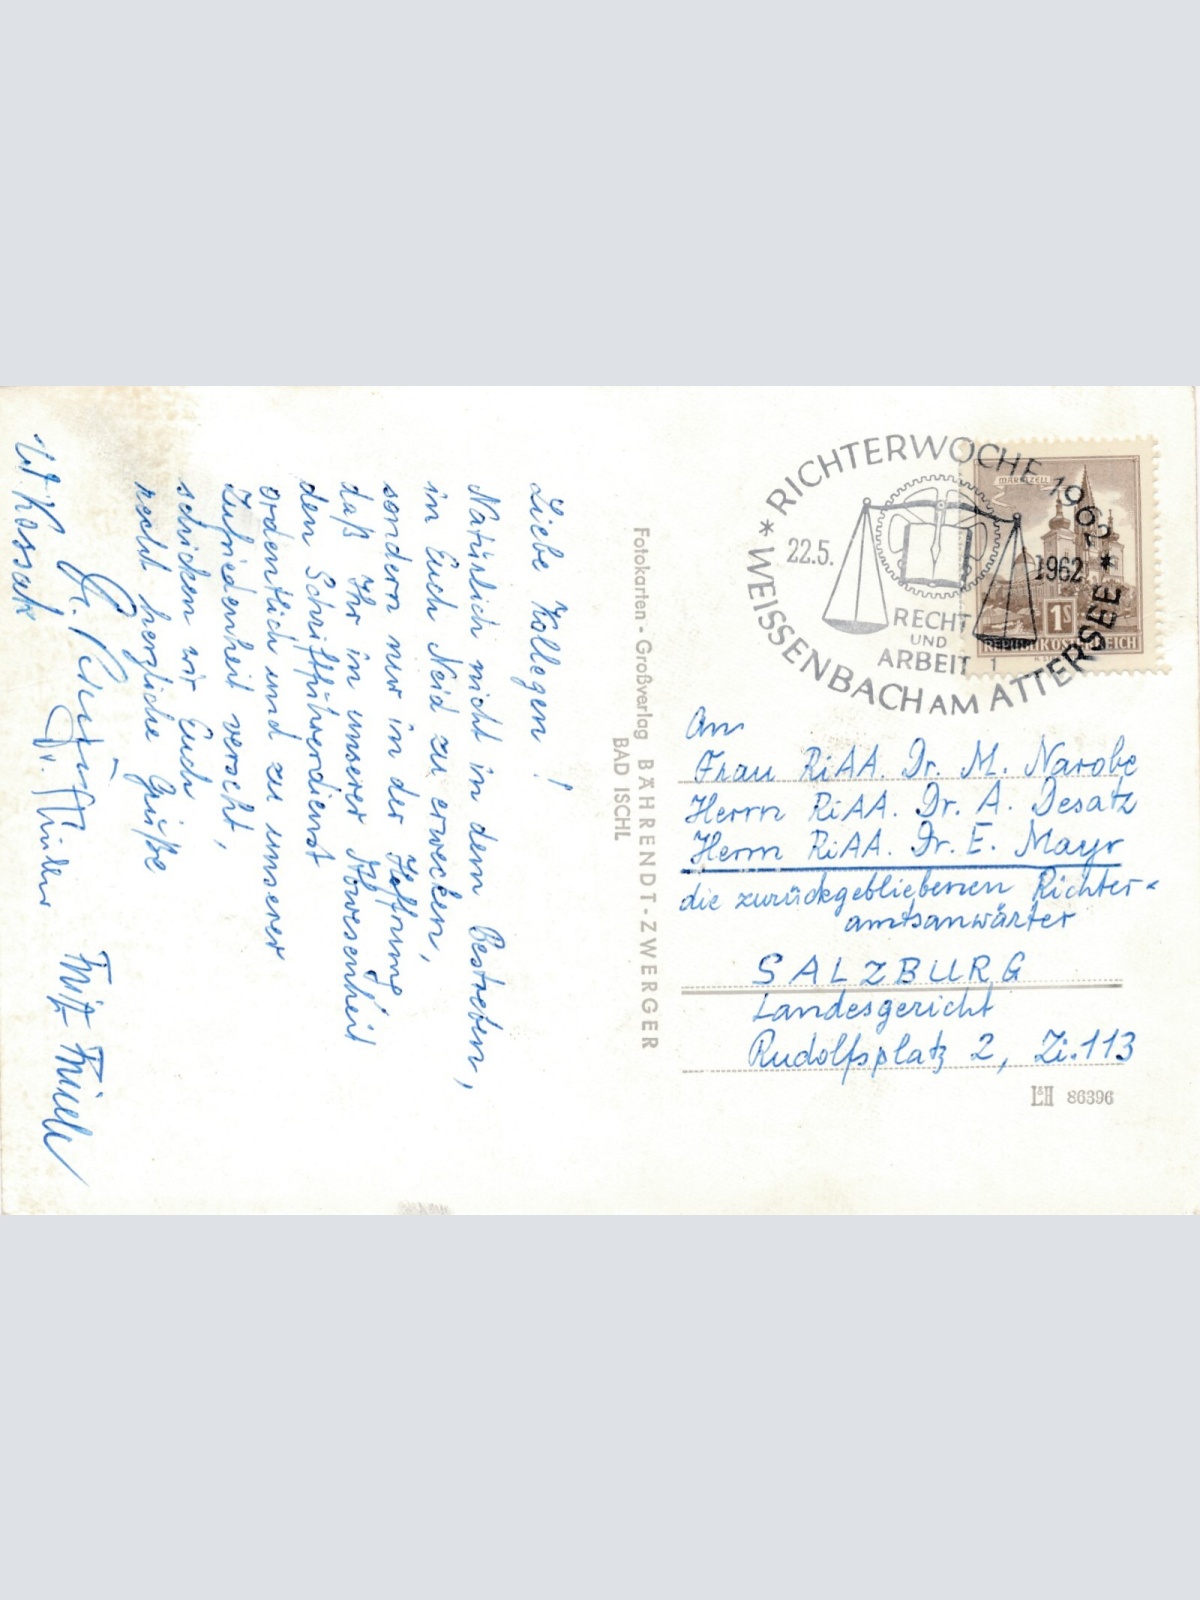 Liebe Kollegen!
Natürlich nicht in dem Bestreben,
in Euch Neid zu erwecken,
sondern nur in der Hoffnung
daß Ihr in unserer Abwesenheit
den Schriftführerdienst
ordentlich und zu unserer
Zufriedenheit verseht,
schicken wir Euch
recht herzliche Grüße
Fritz
W. Kossak
Fotokarten - Großverlag BÄHRENDT-ZWERGER
BAD ISCHL
* RICHTERWOCHE 1962 *
WEISSENBACH AM ATTERSEE
22.5. 1962
RECHT
UND
ARBEIT 1
MARIAZELL
1S
REPUBLIK ÖSTERREICH
An
Frau RiAA. Dr. M. Narobe
Herrn RiAA. Dr. A. Desatz
Herrn RiAA. Dr. E. Mayr
die zurückgebliebenen Richter-
amtsanwärter
SALZBURG
Landesgericht
Rudolfsplatz 2, Zi. 113
L&H 86396